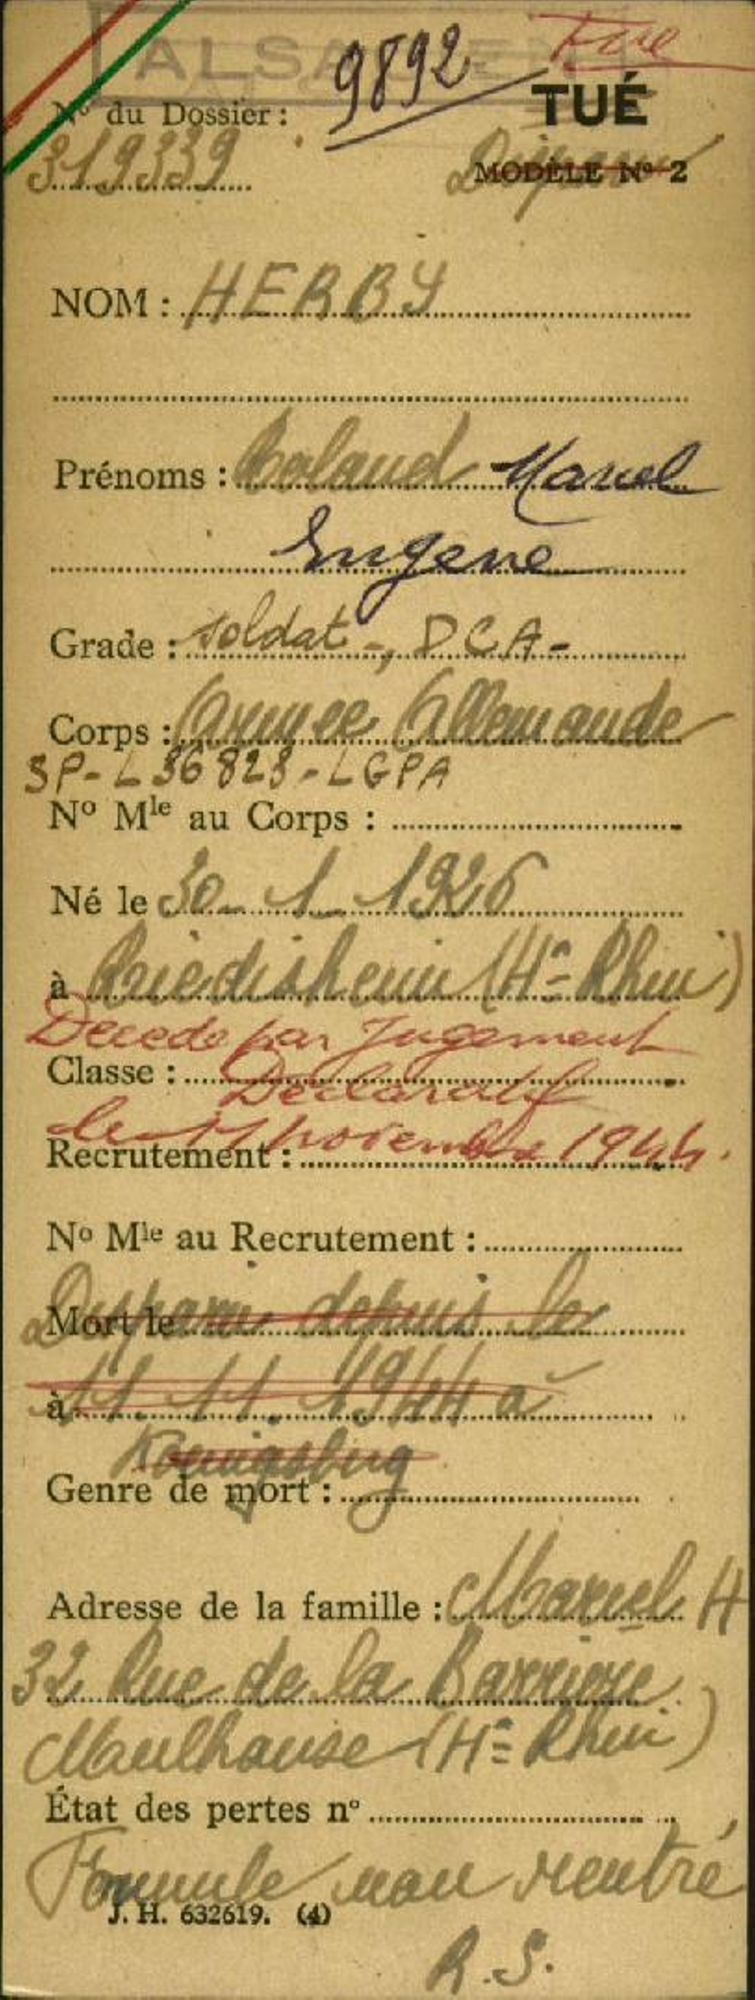 ALSACIEN
9892
Tué
N° du Dossier :
TUÉ
319339
Disparu
MODÈLE N° 2
NOM : HERBY
Prénoms : Roland Marcel
Eugène
Grade : soldat -, DCA -
Corps : Armée Allemande
SP - L 36828 - LGPA
N° Mle au Corps :
Né le 30 - 1 - 1926
à Riedisheim (Ht Rhin)
Décédé par Jugement
Classe :
Déclaratif
le 11 novembre 1944.
Recrutement :
N° Mle au Recrutement :
Disparu depuis le
Mort le
à 11. 11. 1944 à
Koenigsberg
Genre de mort :
Adresse de la famille : Marcel H
32 Rue de la Barrière
Mulhouse (Ht Rhin)
État des pertes n°
Formule non rentré
J. H. 632619. (4)
R.S.